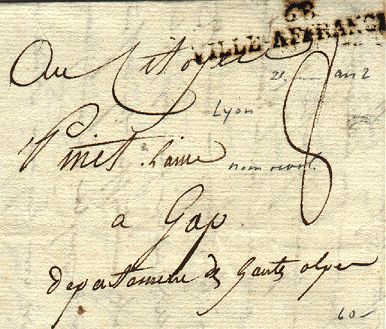 68
VILLE-AFFRANCH
Au Citoyen
an 2
Lyon
8
Pinet l'ainé
nom révol.
a Gap
departement des hautes alpes
60-